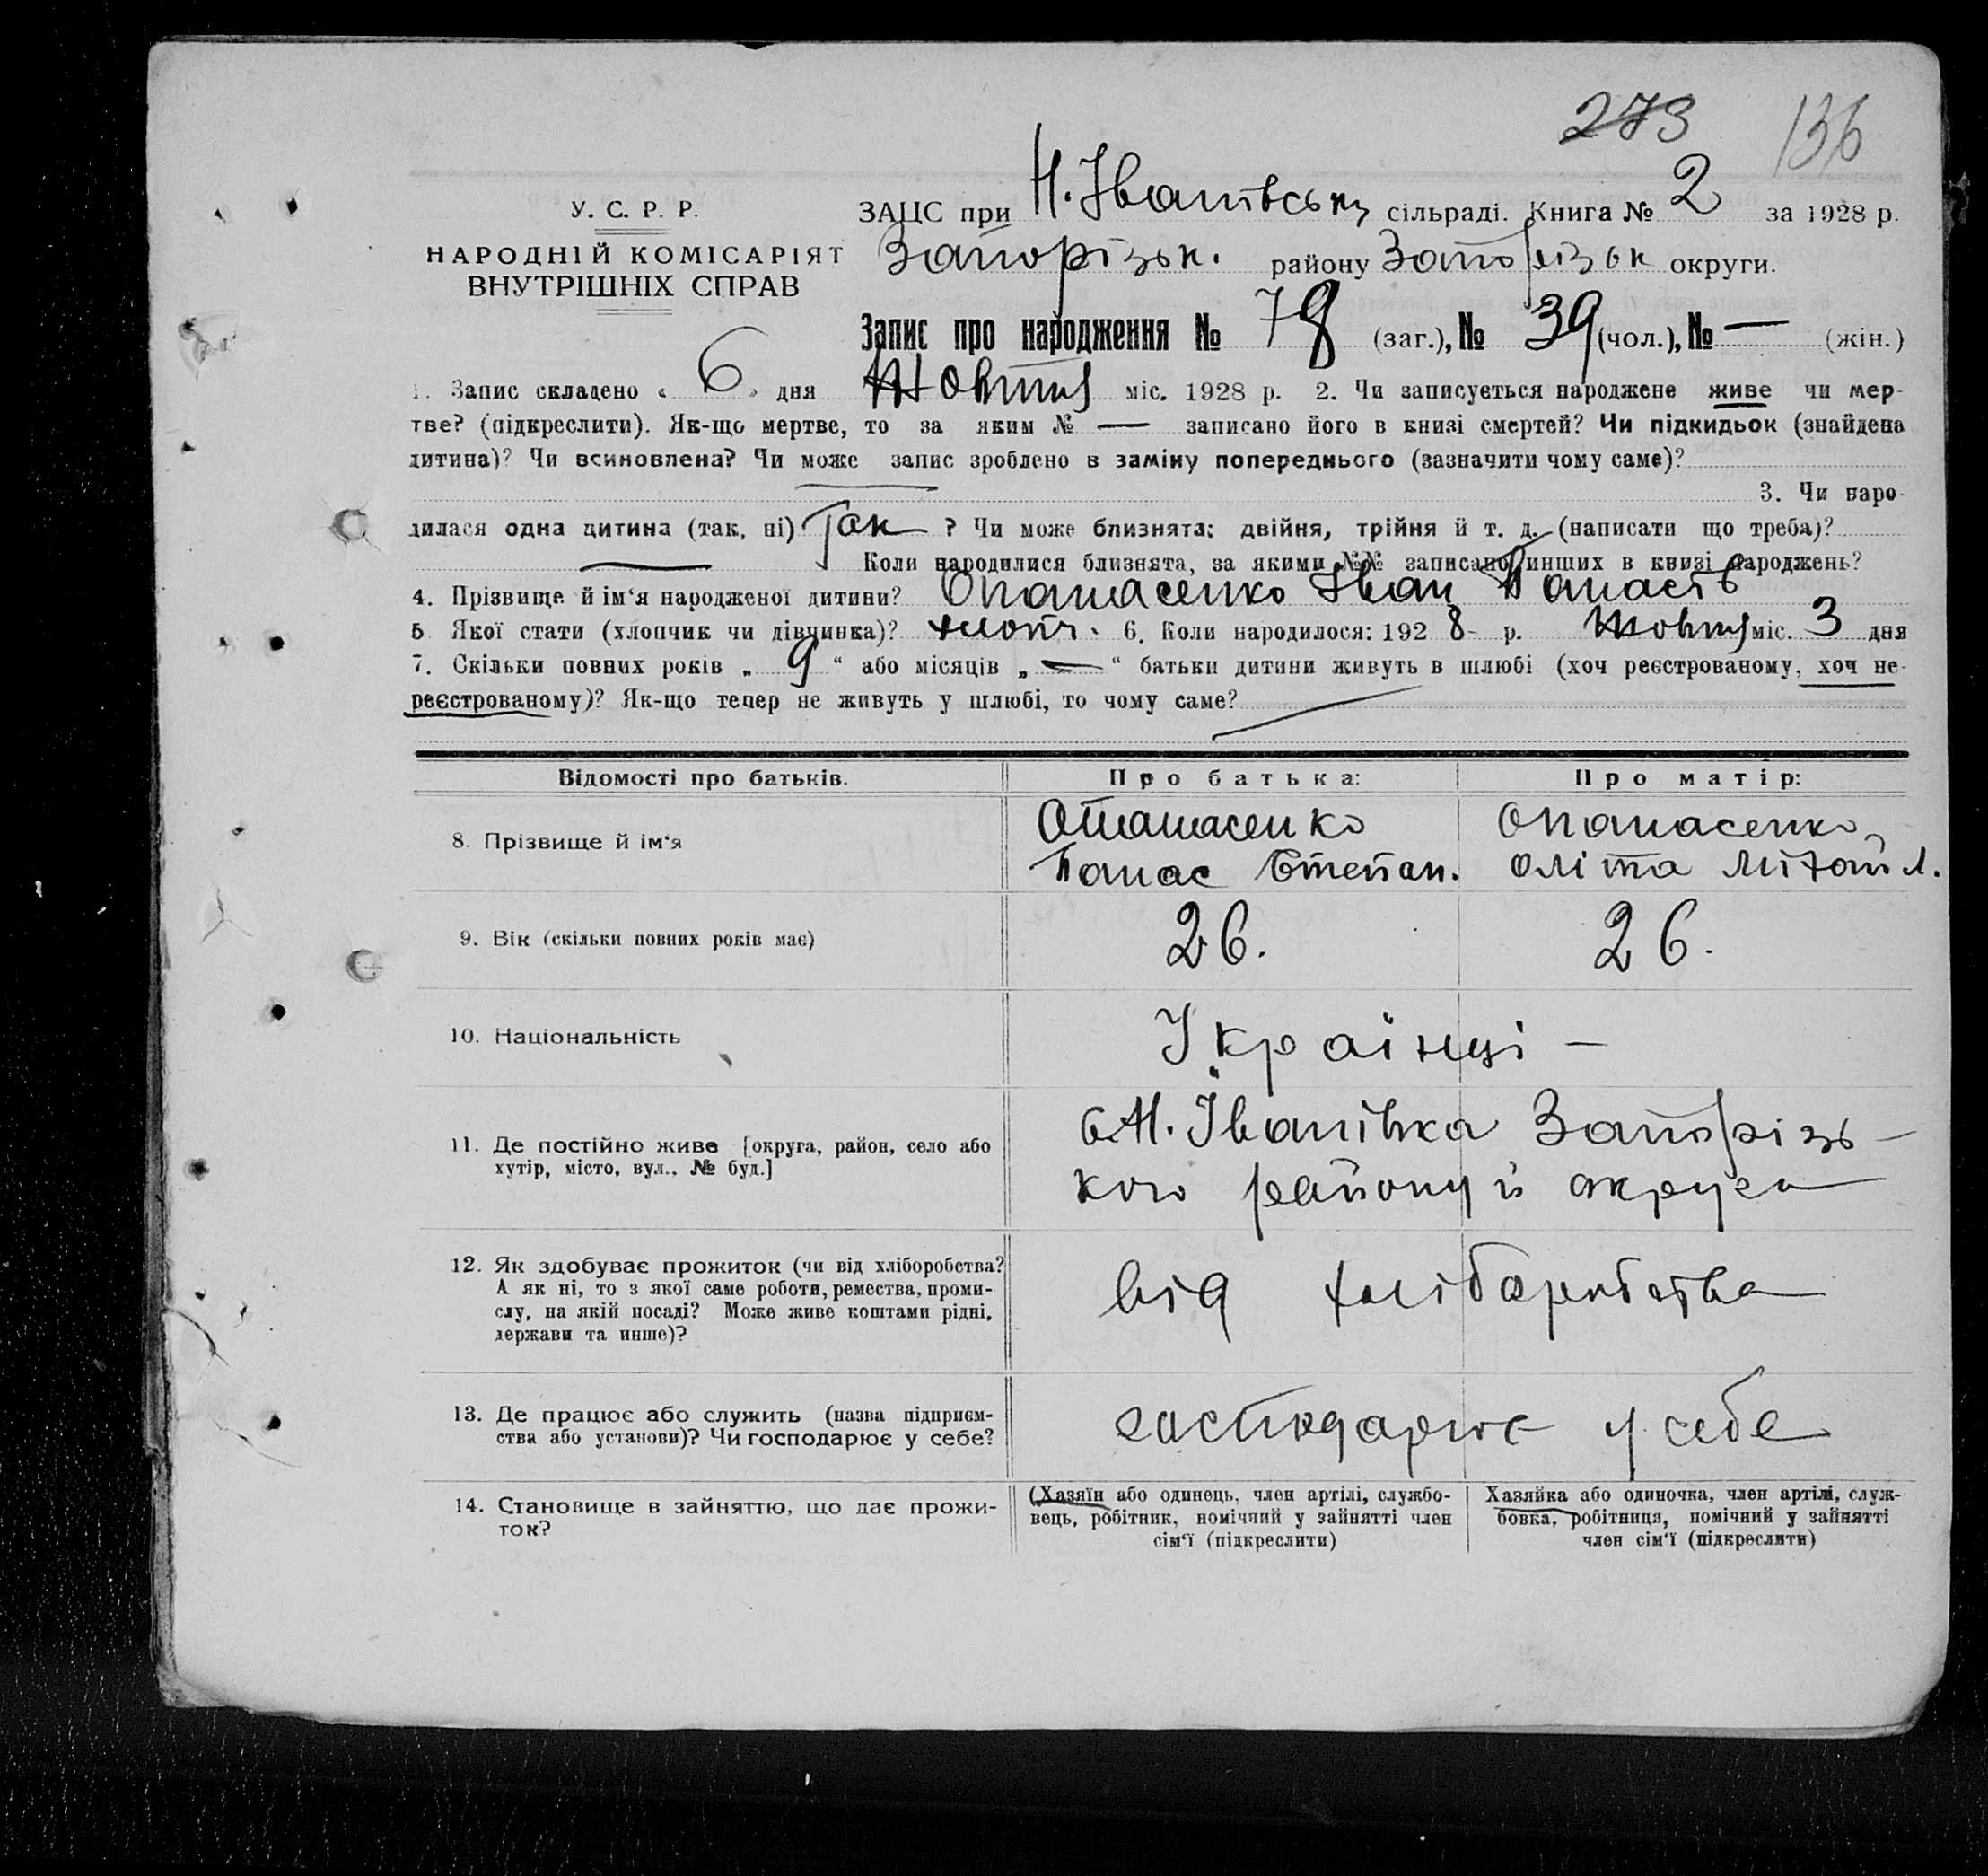 273 136
У. С. Р. Р.
НАРОДНІЙ КОМІСАРІЯТ
ВНУТРІШНІХ СПРАВ
ЗАЦС при Н. Іванівськ сільраді. Книга № 2 за 1928 р.
Запорізьк. району Запорізьк округи.
Запис про народження № 78 (заг.), № 39 (чол.), № — (жін.)
1. Запис складено « 6 » дня Жовтня міс. 1928 р. 2. Чи записується народжене живе чи мер-
тве? (підкреслити). Як-що мертве, то за яким № — записано його в книзі смертей? Чи підкидьок (знайдена
дитина)? Чи всиновлена? Чи може запис зроблено в заміну попереднього (зазначити чому саме)?
3. Чи наро-
дилася одна дитина (так, ні) Так ? Чи може близнята: двійня, трійня й т. д. (написати що треба)?
Коли народилися близнята, за якими №№ записано инших в книзі народжень?
4. Прізвище й ім'я народженої дитини? Опанасенко Іван Панасів
5 Якої стати (хлопчик чи дівчинка)? хлопч. 6. Коли народилося: 1928 р. Жовтня міс. 3 дня
7. Скільки повних років „ 9 “ або місяців „ — “ батьки дитини живуть в шлюбі (хоч реєстрованому, хоч не-
реєстрованому)? Як-що тепер не живуть у шлюбі, то чому саме?
Відомості про батьків. Про батька: Про матір:
8. Прізвище й ім'я
Опанасенко Опанасенко
Панас Степан. Оліта Міхайл.
9. Вік (скільки повних років має) 26. 26.
10. Національність Українці —
11. Де постійно живе [округа, район, село або
хутір, місто, вул., № буд.]
с Н. Іванівка Запорізь-
кого району й округи
12. Як здобуває прожиток (чи від хліборобства?
А як ні, то з якої саме роботи, ремества, проми-
слу, на якій посаді? Може живе коштами рідні,
держави та инше)?
від хліборобства
13. Де працює або служить (назва підприєм-
ства або установи)? Чи господарює у себе?
господарює у себе
14. Становище в зайняттю, що дає прожи-
ток?
(Хазяїн або одинець, член артілі, службо-
вець, робітник, помічний у зайнятті член
сім'ї (підкреслити)
Хазяйка або одиночка, член артілі, служ-
бовка, робітниця, помічний у зайнятті
член сім'ї (підкреслити)